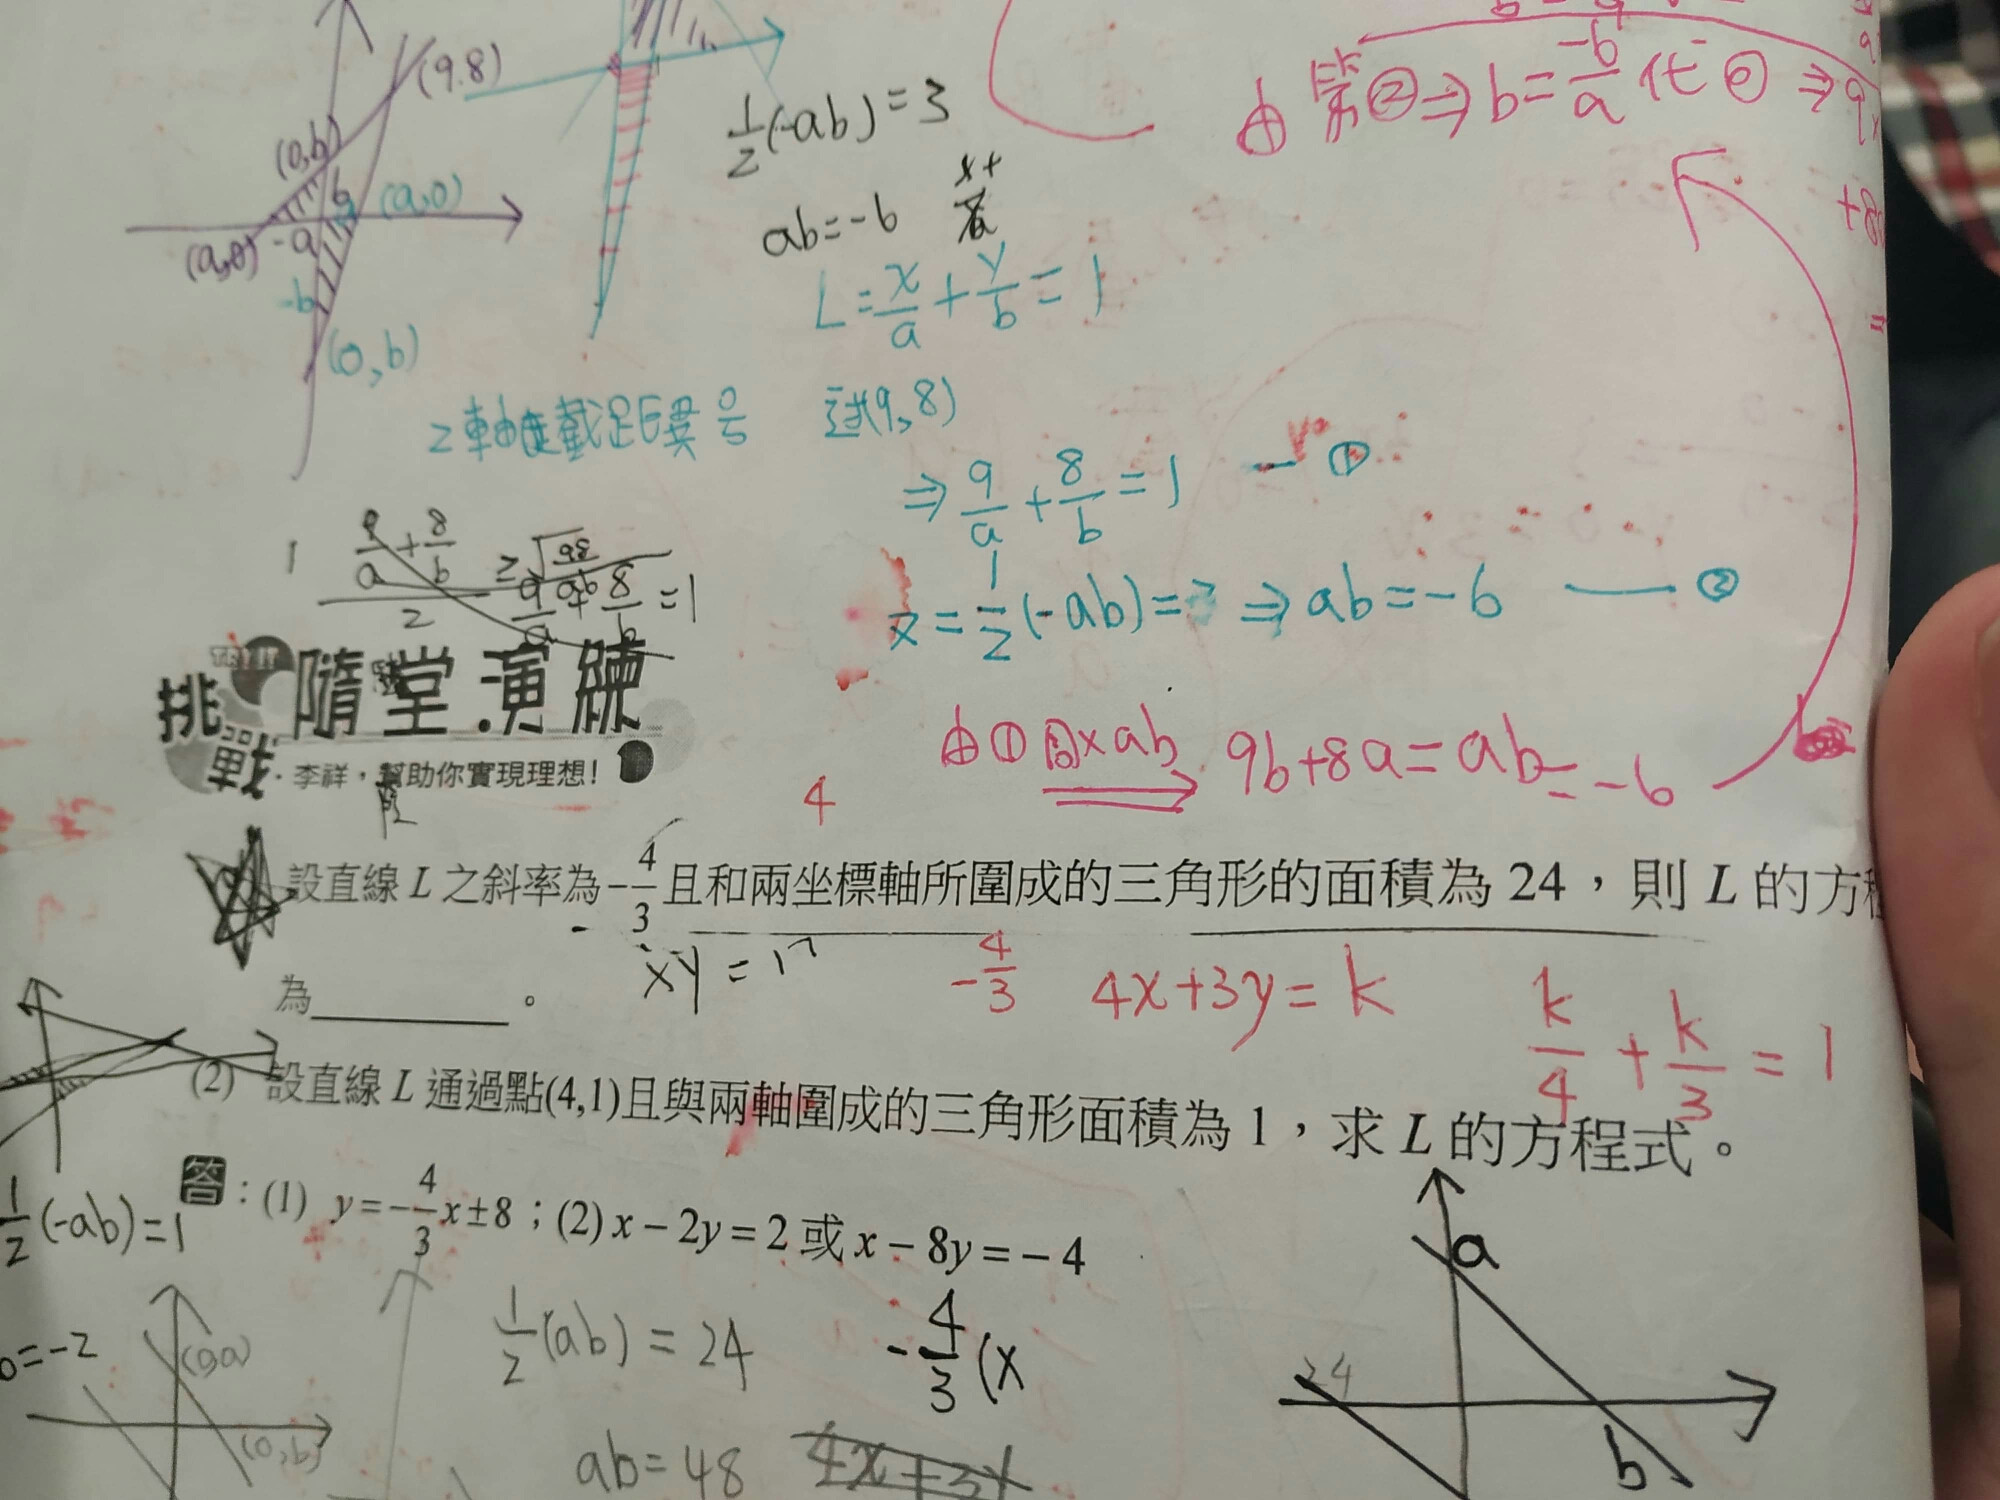 (9.8)
(0,b)
b
(a,0)
(a,0)
-a
-b
(0,b)
1/2(-ab)=3
ab=-6
L=x/a+y/b=1
2軸截距異号 過(9,8)
⇒9/a+8/b=1 — ①
=1/2(-ab)=3⇒ab=-6 — ②
由①同×ab 9b+8a=ab=-6
由第②⇒b=-6/a代⇒9
+8
=
1
9/a+8/b
2
≥√98/ab
9/a+8/b=1
TRY IT
挑戰 隨堂演練
李祥,幫助你實現理想! 1
4
設直線 L 之斜率為-4/3且和兩坐標軸所圍成的三角形的面積為 24,則 L 的方程
為________。
xy=1
-4/3 4x+3y=k
k/4+k/3=1
(2) 設直線 L 通過點(4,1)且與兩軸圍成的三角形面積為 1,求 L 的方程式。
答:(1) y=-4/3x±8;(2) x-2y=2 或 x-8y=-4
1/2(-ab)=1
=-2
(0,a)
(0,b)
1/2(ab)=24
-4/3(x
ab=48
4x+3y
a
24
b